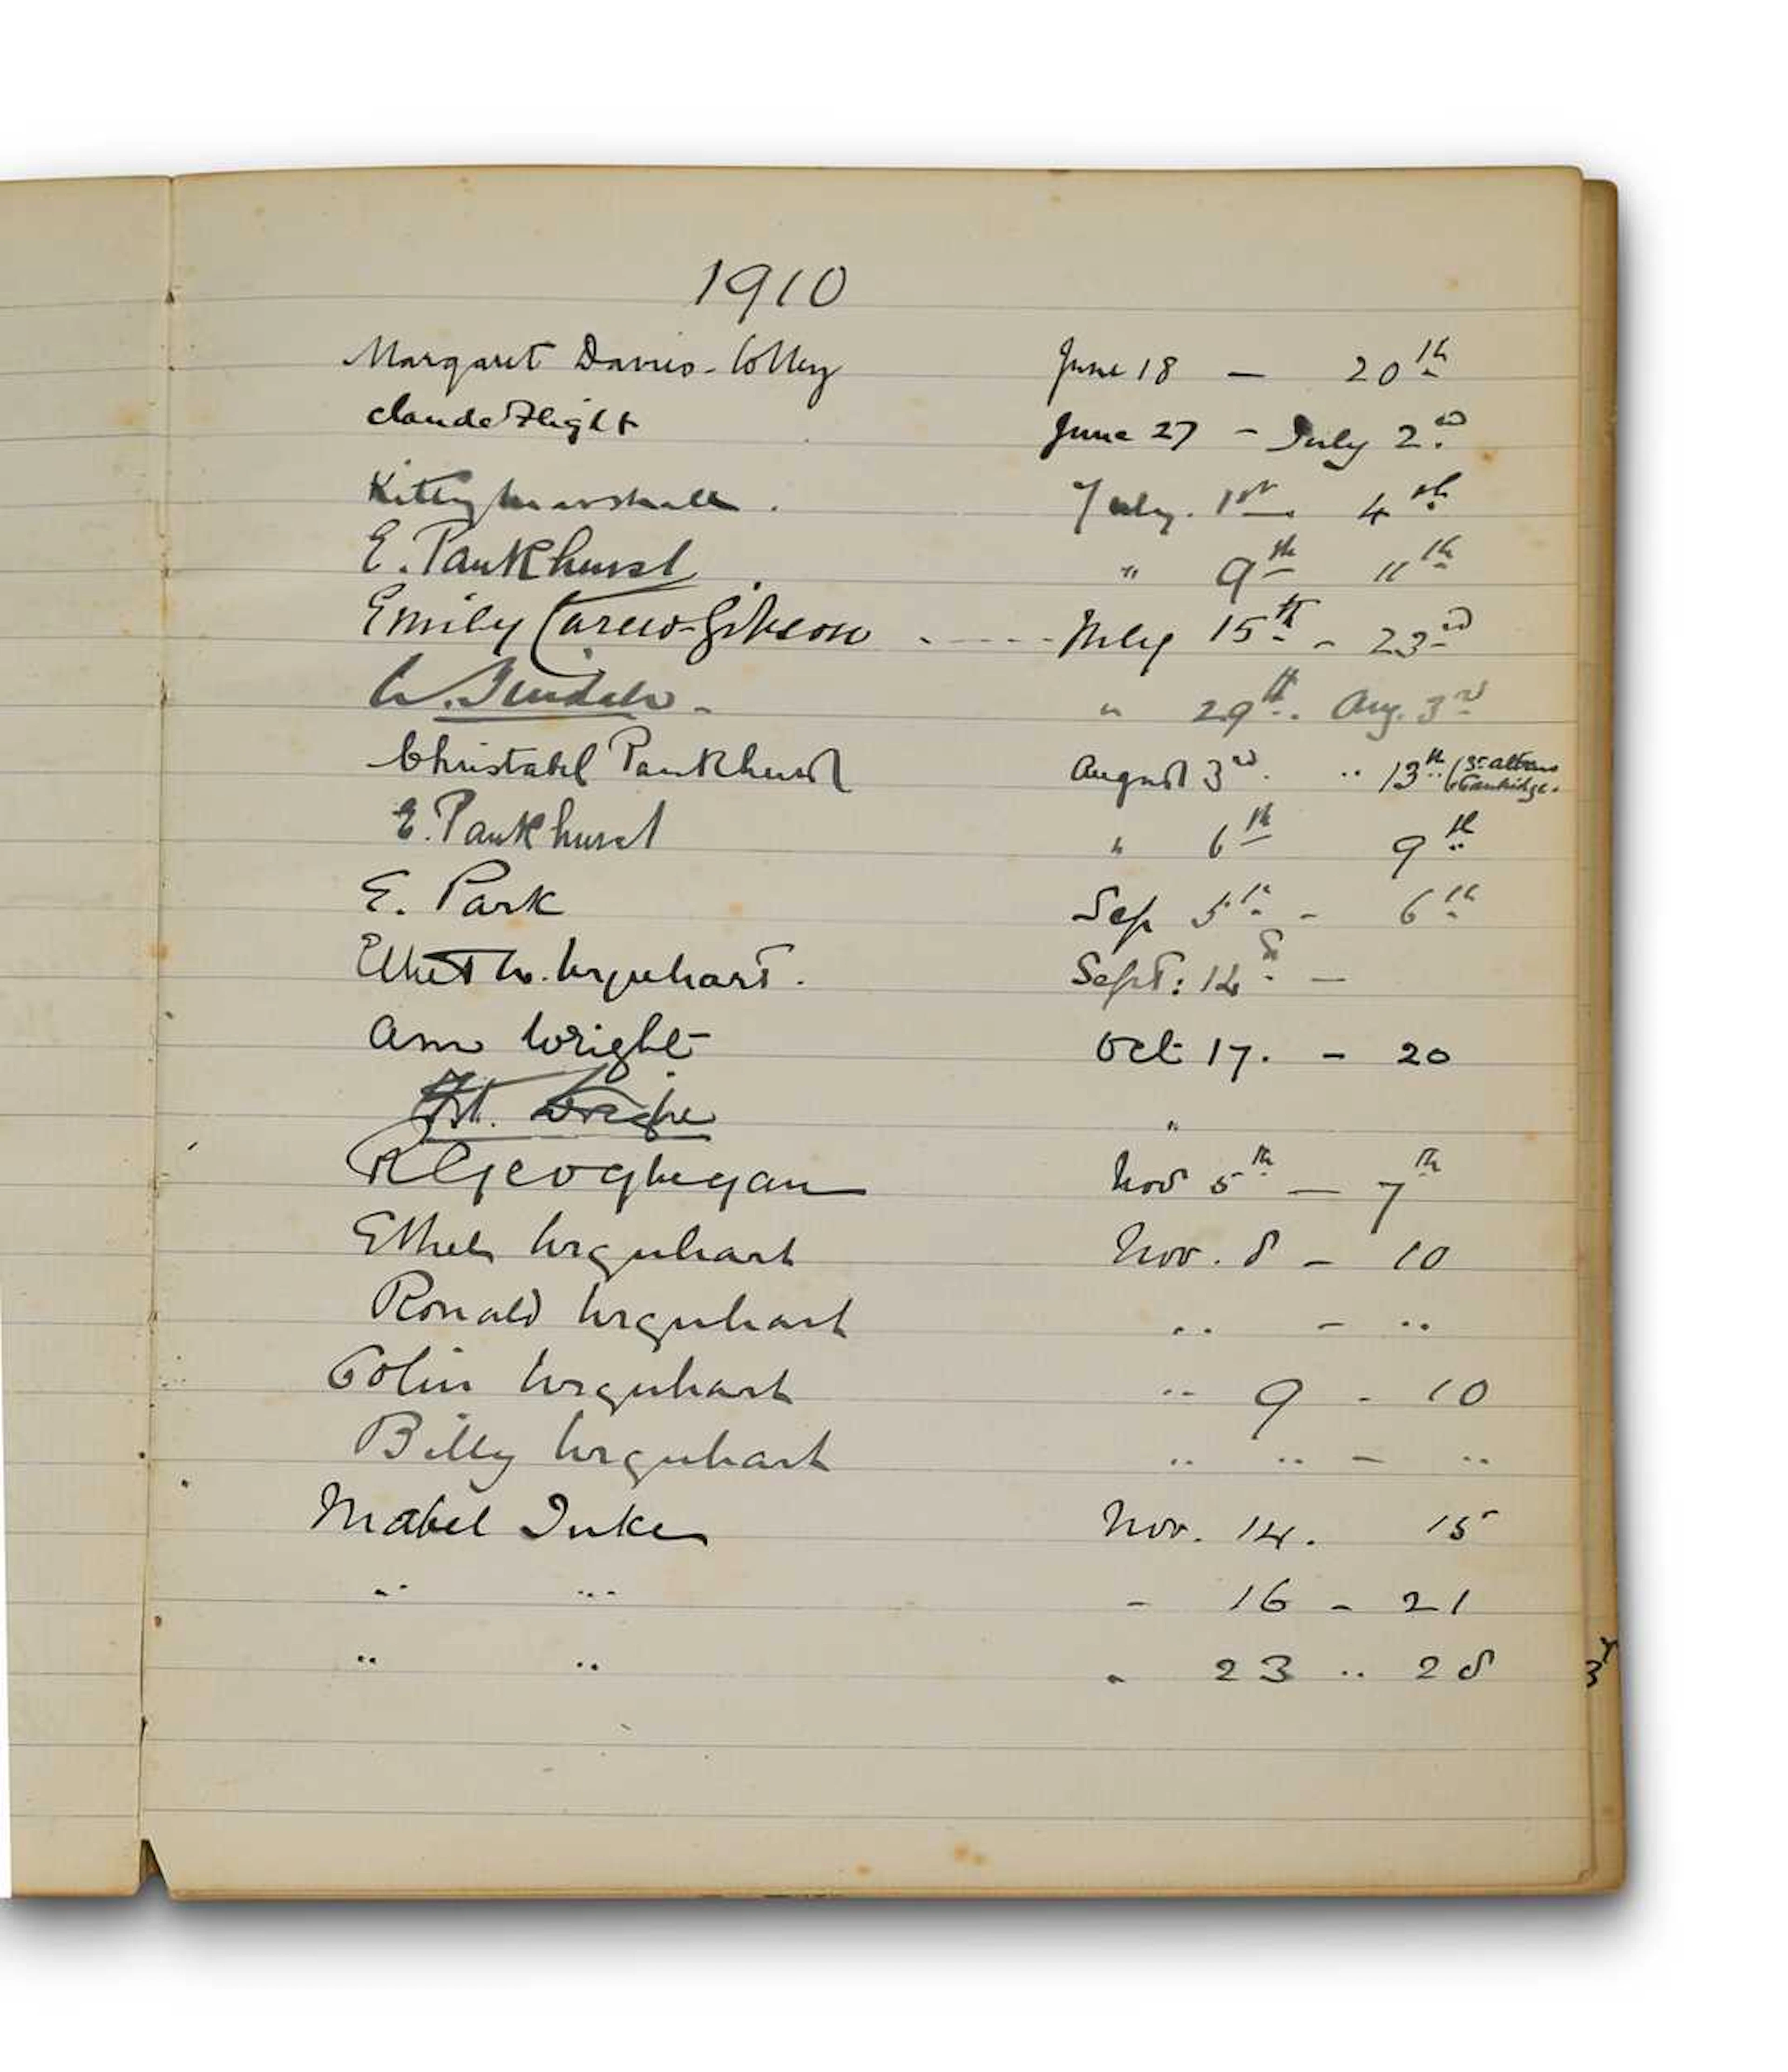 1910
Margaret Davies-Colley June 18 — 20th
Claude Flight June 27 - July 2nd
Kitty Marshall. July. 1st 4th
E. Pankhurst " 9th 11th
Emily Carew-Gibson - - - - - July 15th - 23rd
" 29th. Aug. 3rd
Christabel Pankhurst August 3rd .. 13th (St. Albans
& Cambridge.
E. Pankhurst " 6th 9th
E. Park Sep 5th - 6th
Urquhart. Sept: 14th —
Ann Wright Oct 17. - 20
"
R Geoghegan Nov 5th — 7th
Ethel Urquhart Nov. 8 - 10
Ronald Urquhart .. - ..
Colin Urquhart .. 9 - 10
Billy Urquhart .. .. — ..
Mabel Tuke Nov. 14. 15
.. .. - 16 - 21
.. .. " 23 .. 28